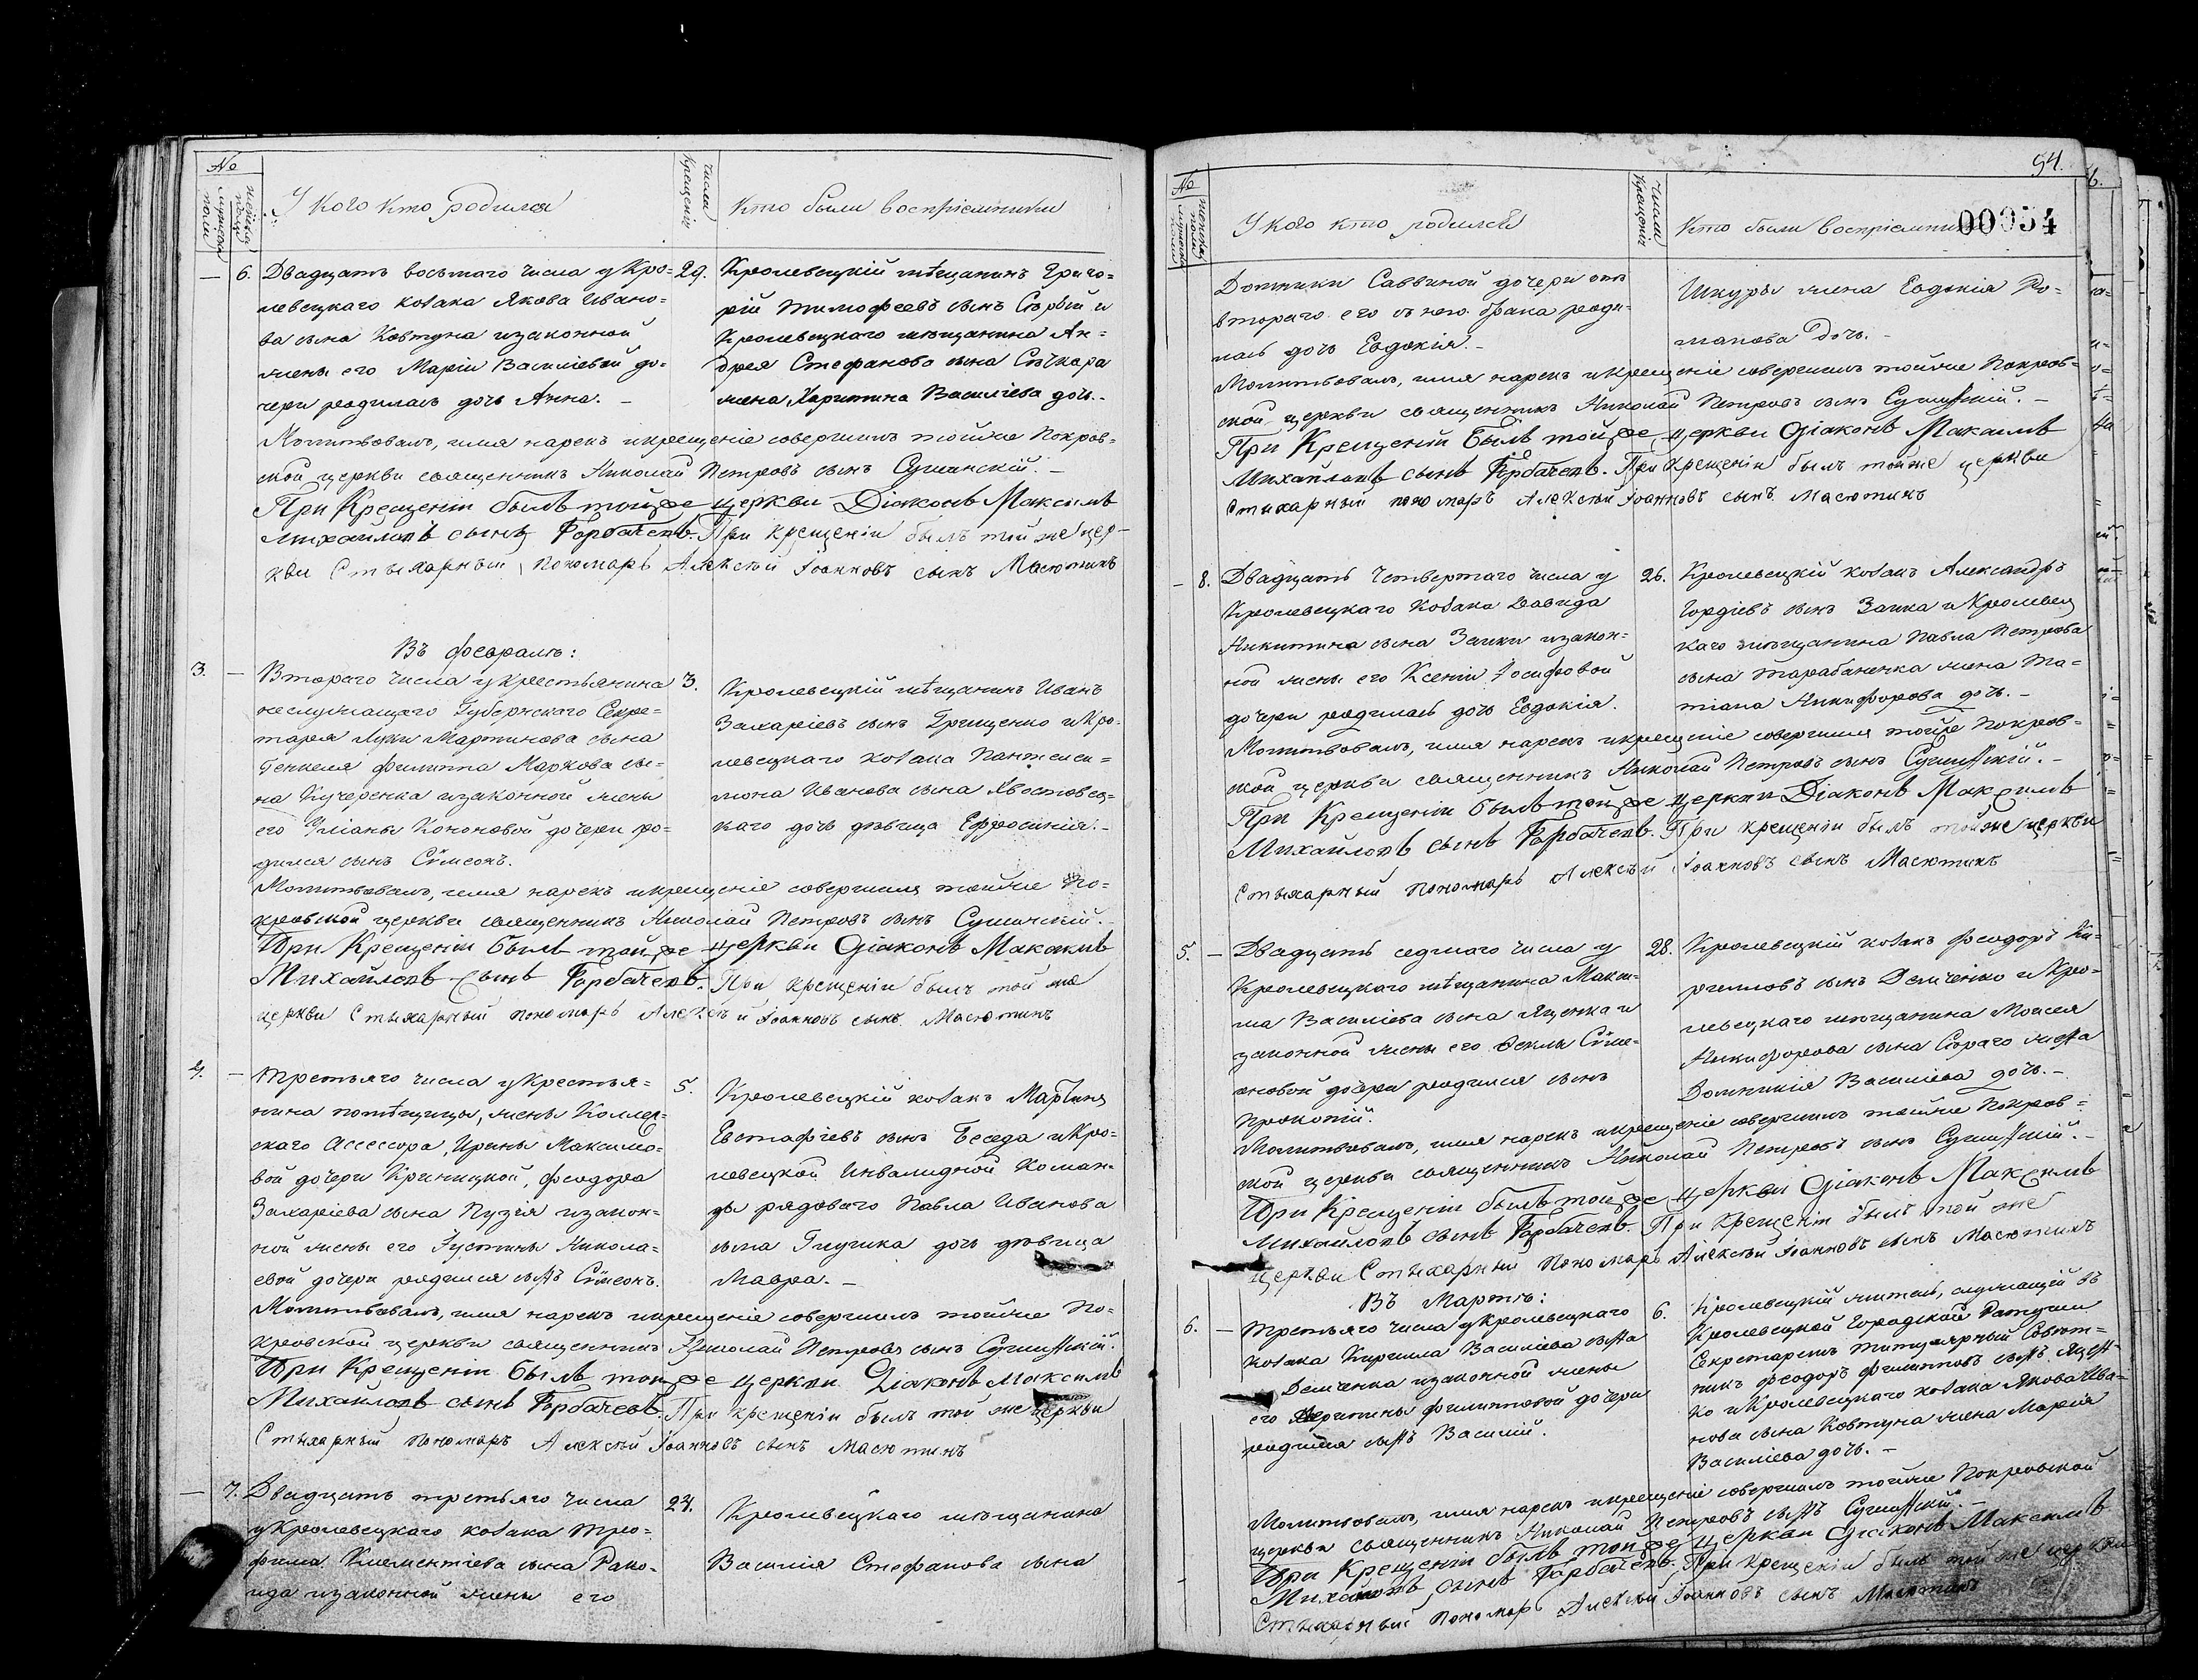 №
мужеска пола
женска пола
У кого кто родился
числа крещенія
кто были воспріемники
— 6. Двадцать восьмаго числа у Кро=
левецкаго козака Якова Ивано=
ва сына Ковтуна изаконной
жены его Маріи Василіевой до=
чери родилась дочь Анна. —
29. Кролевецкій мѣщанинъ Григо=
рій Тимофеевъ сынъ Сѣрый и
Кролевецкаго мѣщанина Ан=
дрея Стефанова сына Сѣчкара
жена Харитина Василіева дочь. -
Молитвовалъ, имя нарекъ икрещеніе совершилъ тойже Покров=
ской церкви священникъ Николай Петровъ сынъ Сушинскій. —
При Крещеніи былъ тойже церкви Діаконъ Максимъ
Михайловъ сынъ Горбачевъ. При крещеніи былъ той же цер-
кви Стыхарный Пономарь Алексѣй Іоанновъ сынъ Масютинъ
Въ февралѣ:
3. — Втораго числа укрестьянина
неслужащаго Губернскаго Секре=
таря Луки Мартинова сына
Генкеля Филиппа Маркова сы=
на Кучеренка изаконной жены
его Уліаны Кононовой дочери ро=
дился сынъ Сѵмеонъ.
3. Кролевецкій мѣщанинъ Иванъ
Захаріевъ сынъ Грищенко иКро-
левецкаго козака Пантелеи=
мона Иванова сына Хвостовец=
каго дочь дѣвица Ефросинія. -
Молитвовалъ, имя нарекъ икрещеніе совершилъ тойже По=
кровской церкви священникъ Николай Петровъ сынъ Сушинскій. -
При Крещеніи былъ тойже церкви Діаконъ Максимъ
Михайловъ сынъ Горбачевъ. При крещеніи былъ той же
церкви Стыхарный пономарь Алексѣй Іоанновъ сынъ Масютинъ
4. — Третьяго числа укрестья=
нина помѣщицы, жены Коллеж-
скаго Ассессора, Ирины Максимо=
вой дочери Криницкой, Феодора
Захаріева сына Пузія изакон=
ной жены его Іустины Никола=
евой дочери родился сынъ Сѵмеонъ.
5. Кролевецкій козакъ Мартинъ
Евстафіевъ сынъ Беседа иКро=
левецкой Инвалидной Коман=
ды рядоваго Павла Иванова
сына Гнучика дочь дѣвица
Мавра. —
Молитвовалъ, имя нарекъ икрещеніе совершилъ тойже По=
кровской церкви священникъ Николай Петровъ сынъ Сушинскій.
При Крещеніи былъ тойже церкви Діаконъ Максимъ
Михайловъ сынъ Горбачевъ. При крещеніи былъ той же церкви
Стыхарный пономарь Алексѣй Іоанновъ сынъ Масютинъ
— 7. Двадцать третьяго числа
уКролевецкаго козака Тро=
фима Климентіева сына
изаконной жены его
24. Кролевецкаго мѣщанина
Василія Стефанова сына
94.
№
мужеска пола
женска пола
У кого кто родился
Числа Крещенія
Кто были воспріемники
00054
Домники Саввиной дочери отъ
втораго его съ нею брака роди=
лась дочь Евдокія. -
Шкуры жена Евдокія Ро=
манова дочь. -
Молитвовалъ, имя нарекъ икрещеніе совершилъ тойже Покров=
ской церкви священникъ Николай Петровъ сынъ Сушинскій. —
При Крещеніи Былъ тойже церкви Діаконъ Максимъ
Михайловъ сынъ Горбачевъ. При крещеніи былъ тойже церкви
Стихарный пономарь Алексѣй Іоанновъ сынъ Масютинъ
— 8. Двадцать Четвертаго числа у
Кролевецкаго козака Давида
Никитина сына Заики изакон=
ной жены его Ксеніи Іосифовой
дочери родилась дочь Евдокія.
26. Кролевецкій козакъ Александръ
Гордіевъ сынъ Заика иКролевец
каго мѣщанина Павла Петрова
сына Тарабаненка жена Та=
тіана Никифорова дочь. -
Молитвовалъ, имя нарекъ икрещеніе совершилъ тойже Покров=
ской церкви священникъ Николай Петровъ сынъ Сушинскій. -
При Крещеніи былъ тойже церкви Діаконъ Максимъ
Михайловъ сынъ Горбачевъ. При крещеніи былъ тойже церкви
Стыхарный пономарь Алексѣй Іоанновъ сынъ Масютинъ
5. — Двадцать седмаго числа у
Кролевецкаго мѣщанина Макси-
ма Василіева сына Яценка и
законной жены его Феклы Сѵме-
оновой дочери родился сынъ
Прокопій.
28. Кролевецкій козакъ Феодоръ Ки-
рилловъ сынъ Демченко иКро-
левецкаго мѣщанина Моисея
Никифорова сына Сѣраго жена
Домникія Василіева дочь. -
Молитвовалъ, имя нарекъ икрещеніе совершилъ тойже Покров=
ской церкви священникъ Николай Петровъ сынъ Сушинскій. -
При Крещеніи былъ тойже церкви Діаконъ Максимъ
Михайловъ сынъ Горбачевъ. При крещеніи былъ той же
церкви Стыхарный пономарь Алексѣй Іоанновъ сынъ Масютинъ
Въ Мартѣ:
6. — Третьяго числа укролевецкаго
козака Кирилла Василіева сына
Демченка изаконной жены
его Филипповой дочери
родился сынъ Василій.
6. Кролевецкій житель, служащій въ
Кролевецкой Городской Ратуши
Секретаремъ титулярный Совѣт=
никъ Феодоръ Филипповъ сынъ Яцен-
ко иКролевецкаго козака Якова Ива=
нова сына Ковтуна жена Марія
Василіева дочь. —
Молитвовалъ, имя нарекъ икрещеніе совершилъ тойже Покровской
церкви священникъ Николай Петровъ сынъ Сушинскій. -
При Крещеніи былъ тойже церкви Діаконъ Максимъ
Михайловъ сынъ Горбачевъ. При крещеніи былъ той же церкви
Стыхарный пономарь Алексѣй Іоанновъ сынъ Масютинъ